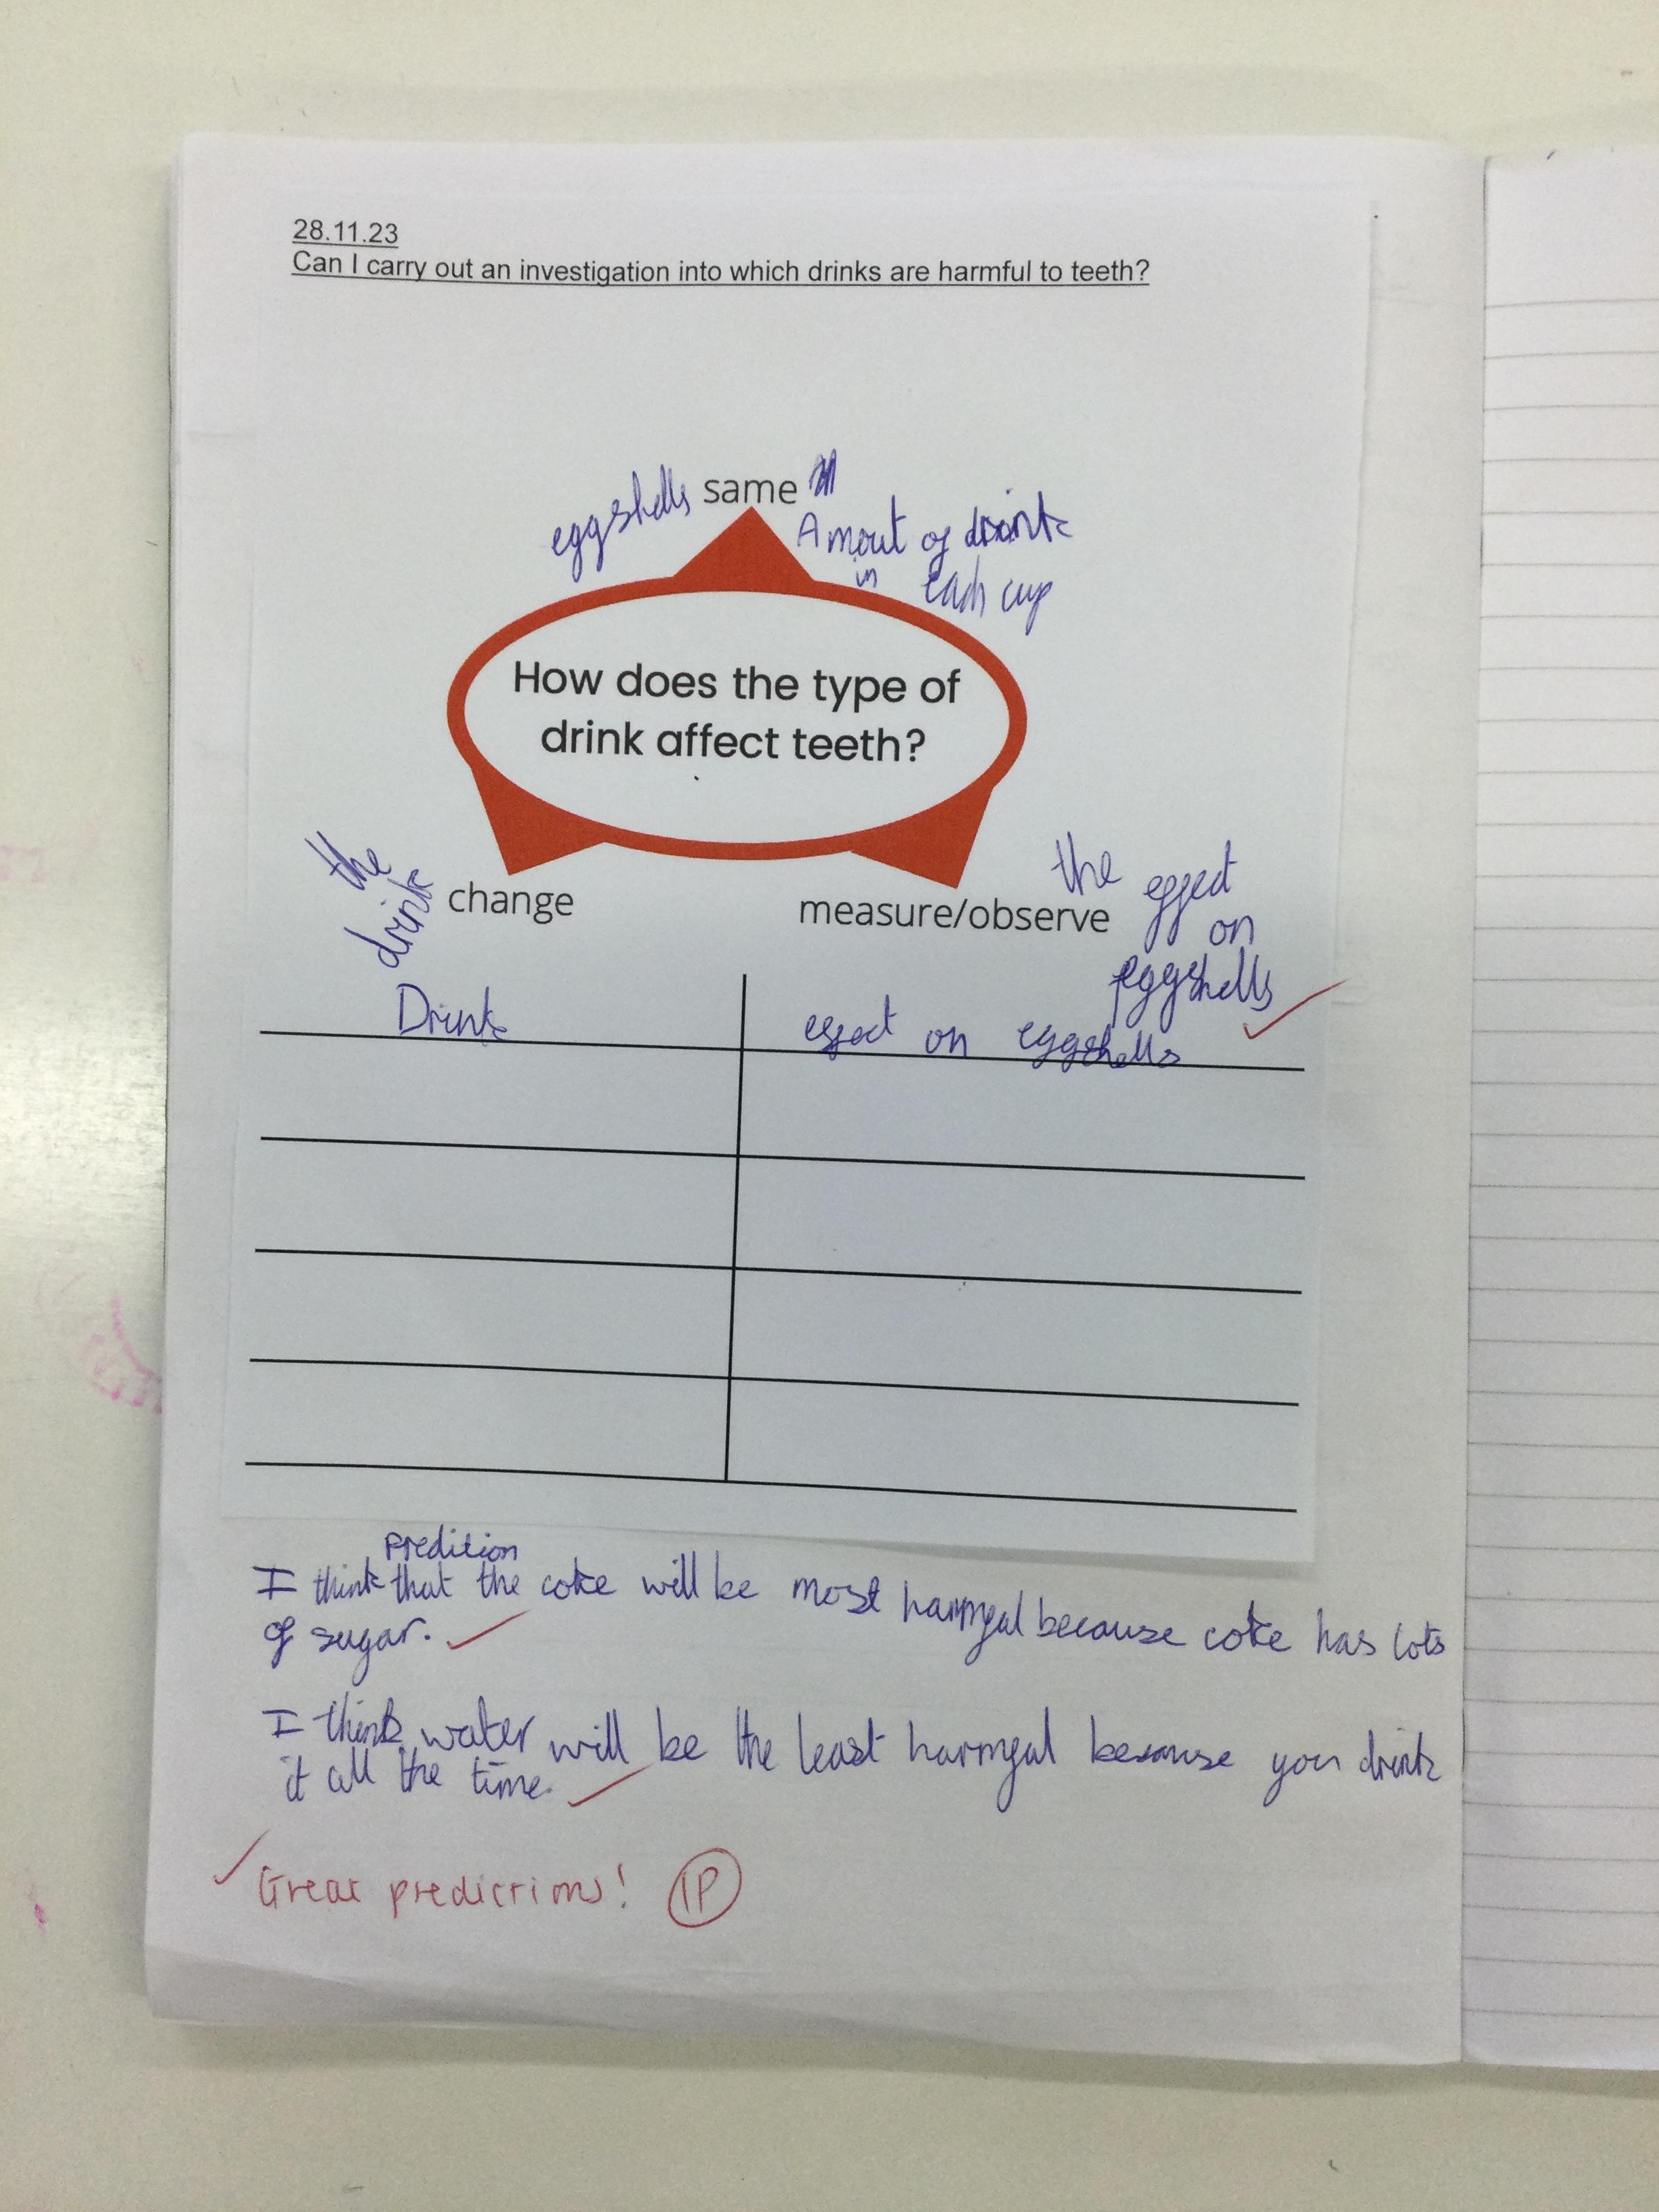 28.11.23
Can I carry out an investigation into which drinks are harmful to teeth?
eggshells same
Amout of drink
in each cup
How does the type of
drink affect teeth?
the
drink
change
measure/observe
the effect
on
eggshells
Drink
effect on eggshells
Predition
I think that the coke will be most harmful because coke has lots
of sugar.
I think water will be the least harmful because you drink
it all the time.
Great predictions! 1P